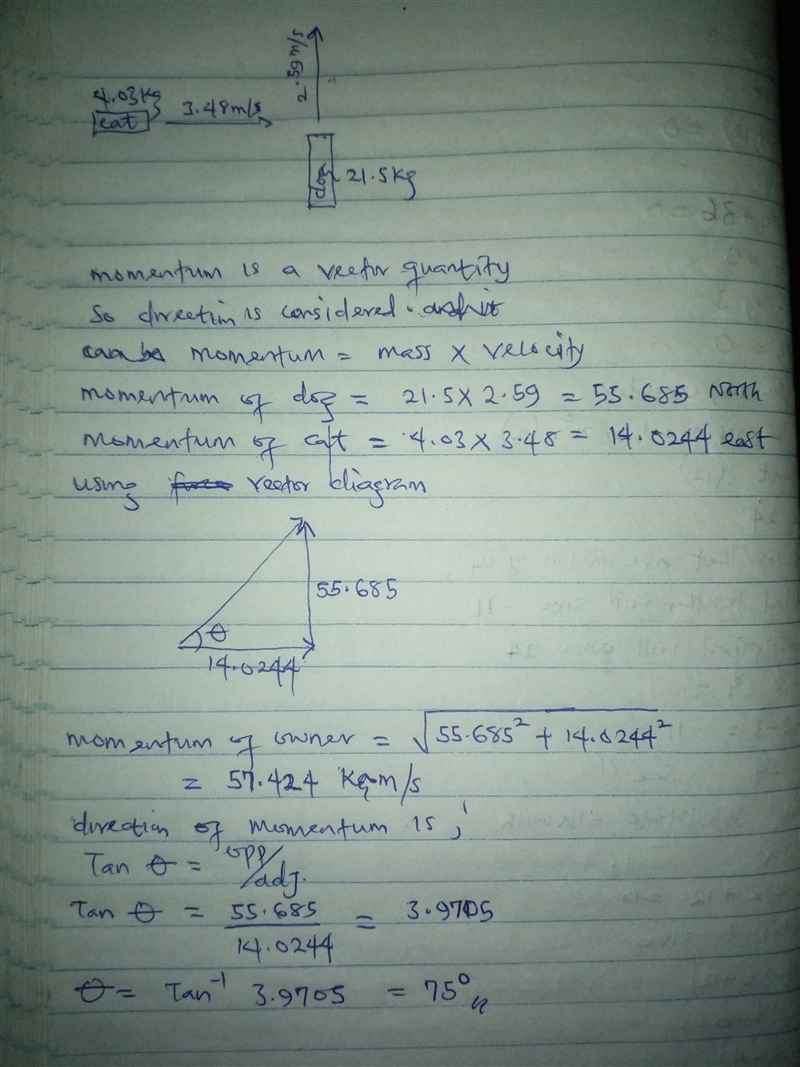 2.59 m/s
4.03kg
cat
3.48m/s
dog
21.5kg
momentum is a vector quantity
So direction is considered.
momentum = mass × velocity
momentum of dog = 21.5 × 2.59 = 55.685 North
momentum of cat = 4.03 × 3.48 = 14.0244 east
using vector diagram
55.685
θ
14.0244
momentum of owner = √55.685² + 14.0244²
= 57.424 kg-m/s
direction of momentum is,
Tan θ = opp/adj.
Tan θ = 55.685/14.0244 = 3.9705
θ = Tan⁻¹ 3.9705 = 75°